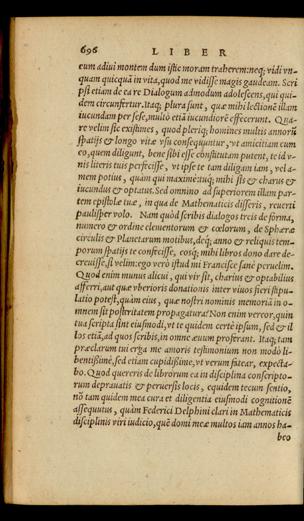 696 LIBER
eum adiui montem dum istic moram traherem: neq; vidi vn-
quam quicquā in vita, quod me vidisse magis gaudeam. Scri
psi etiam de ea re Dialogum admodum adolescens, qui qui-
dem circunfertur. Itaq; plura sunt, quæ mihi lectionē illam
iucundam per sese, multò etiā iucundiorē effecerunt. Qua-
re velim sic existimes, quod pleriq; homines multis annorū
spatijs & longo vitæ vsu consequuntur, vt amicitiam cum
eo, quem diligunt, bene sibi esse constitutam putent, te id v-
nis literis tuis perfecisse, vt ipse te tam diligam iam, vel a-
mem potius, quàm qui maximè: tuq; mihi sis & charus &
iucundus & optatus. Sed omnino ad superiorem illam par-
tem epistolæ tuæ, in qua de Mathematicis disseris, reuerti
paulisper volo. Nam quòd scribis dialogos treis de forma,
numero & ordine elementorum & cœlorum, de Sphæræ
circulis & Planetarum motibus, deq; anno & reliquis tem-
porum spatijs te confecisse, eosq; mihi libros dono dare de-
creuisse, si velim: ego verò istud mi Francisce sanè peruelim.
Quod enim munus alicui, qui vir sit, charius & optabilius
afferri, aut quæ vberioris donationis inter viuos fieri stipu-
latio potest, quàm eius, quæ nostri nominis memoriā in o-
mnem sit posteritatem propagatura? Non enim vereor, quin
tua scripta sint eiusmodi, vt te quidem certè ipsum, sed & il
los etiā, ad quos scribis, in omne æuum proferant. Itaq; tam
præclarum tui erga me amoris testimonium non modò li-
bentissimè, sed etiam cupidissimè, vt verum fatear, expecta-
bo. Quod quereris de librorum ea in disciplina conscripto-
rum deprauatis & peruersis locis, equidem tecum sentio,
nō tam quidem mea cura et diligentia eiusmodi cognitionē
assequutus, quàm Federici Delphini clari in Mathematicis
disciplinis viri iudicio, quē domi meæ multos iam annos ha-
beo